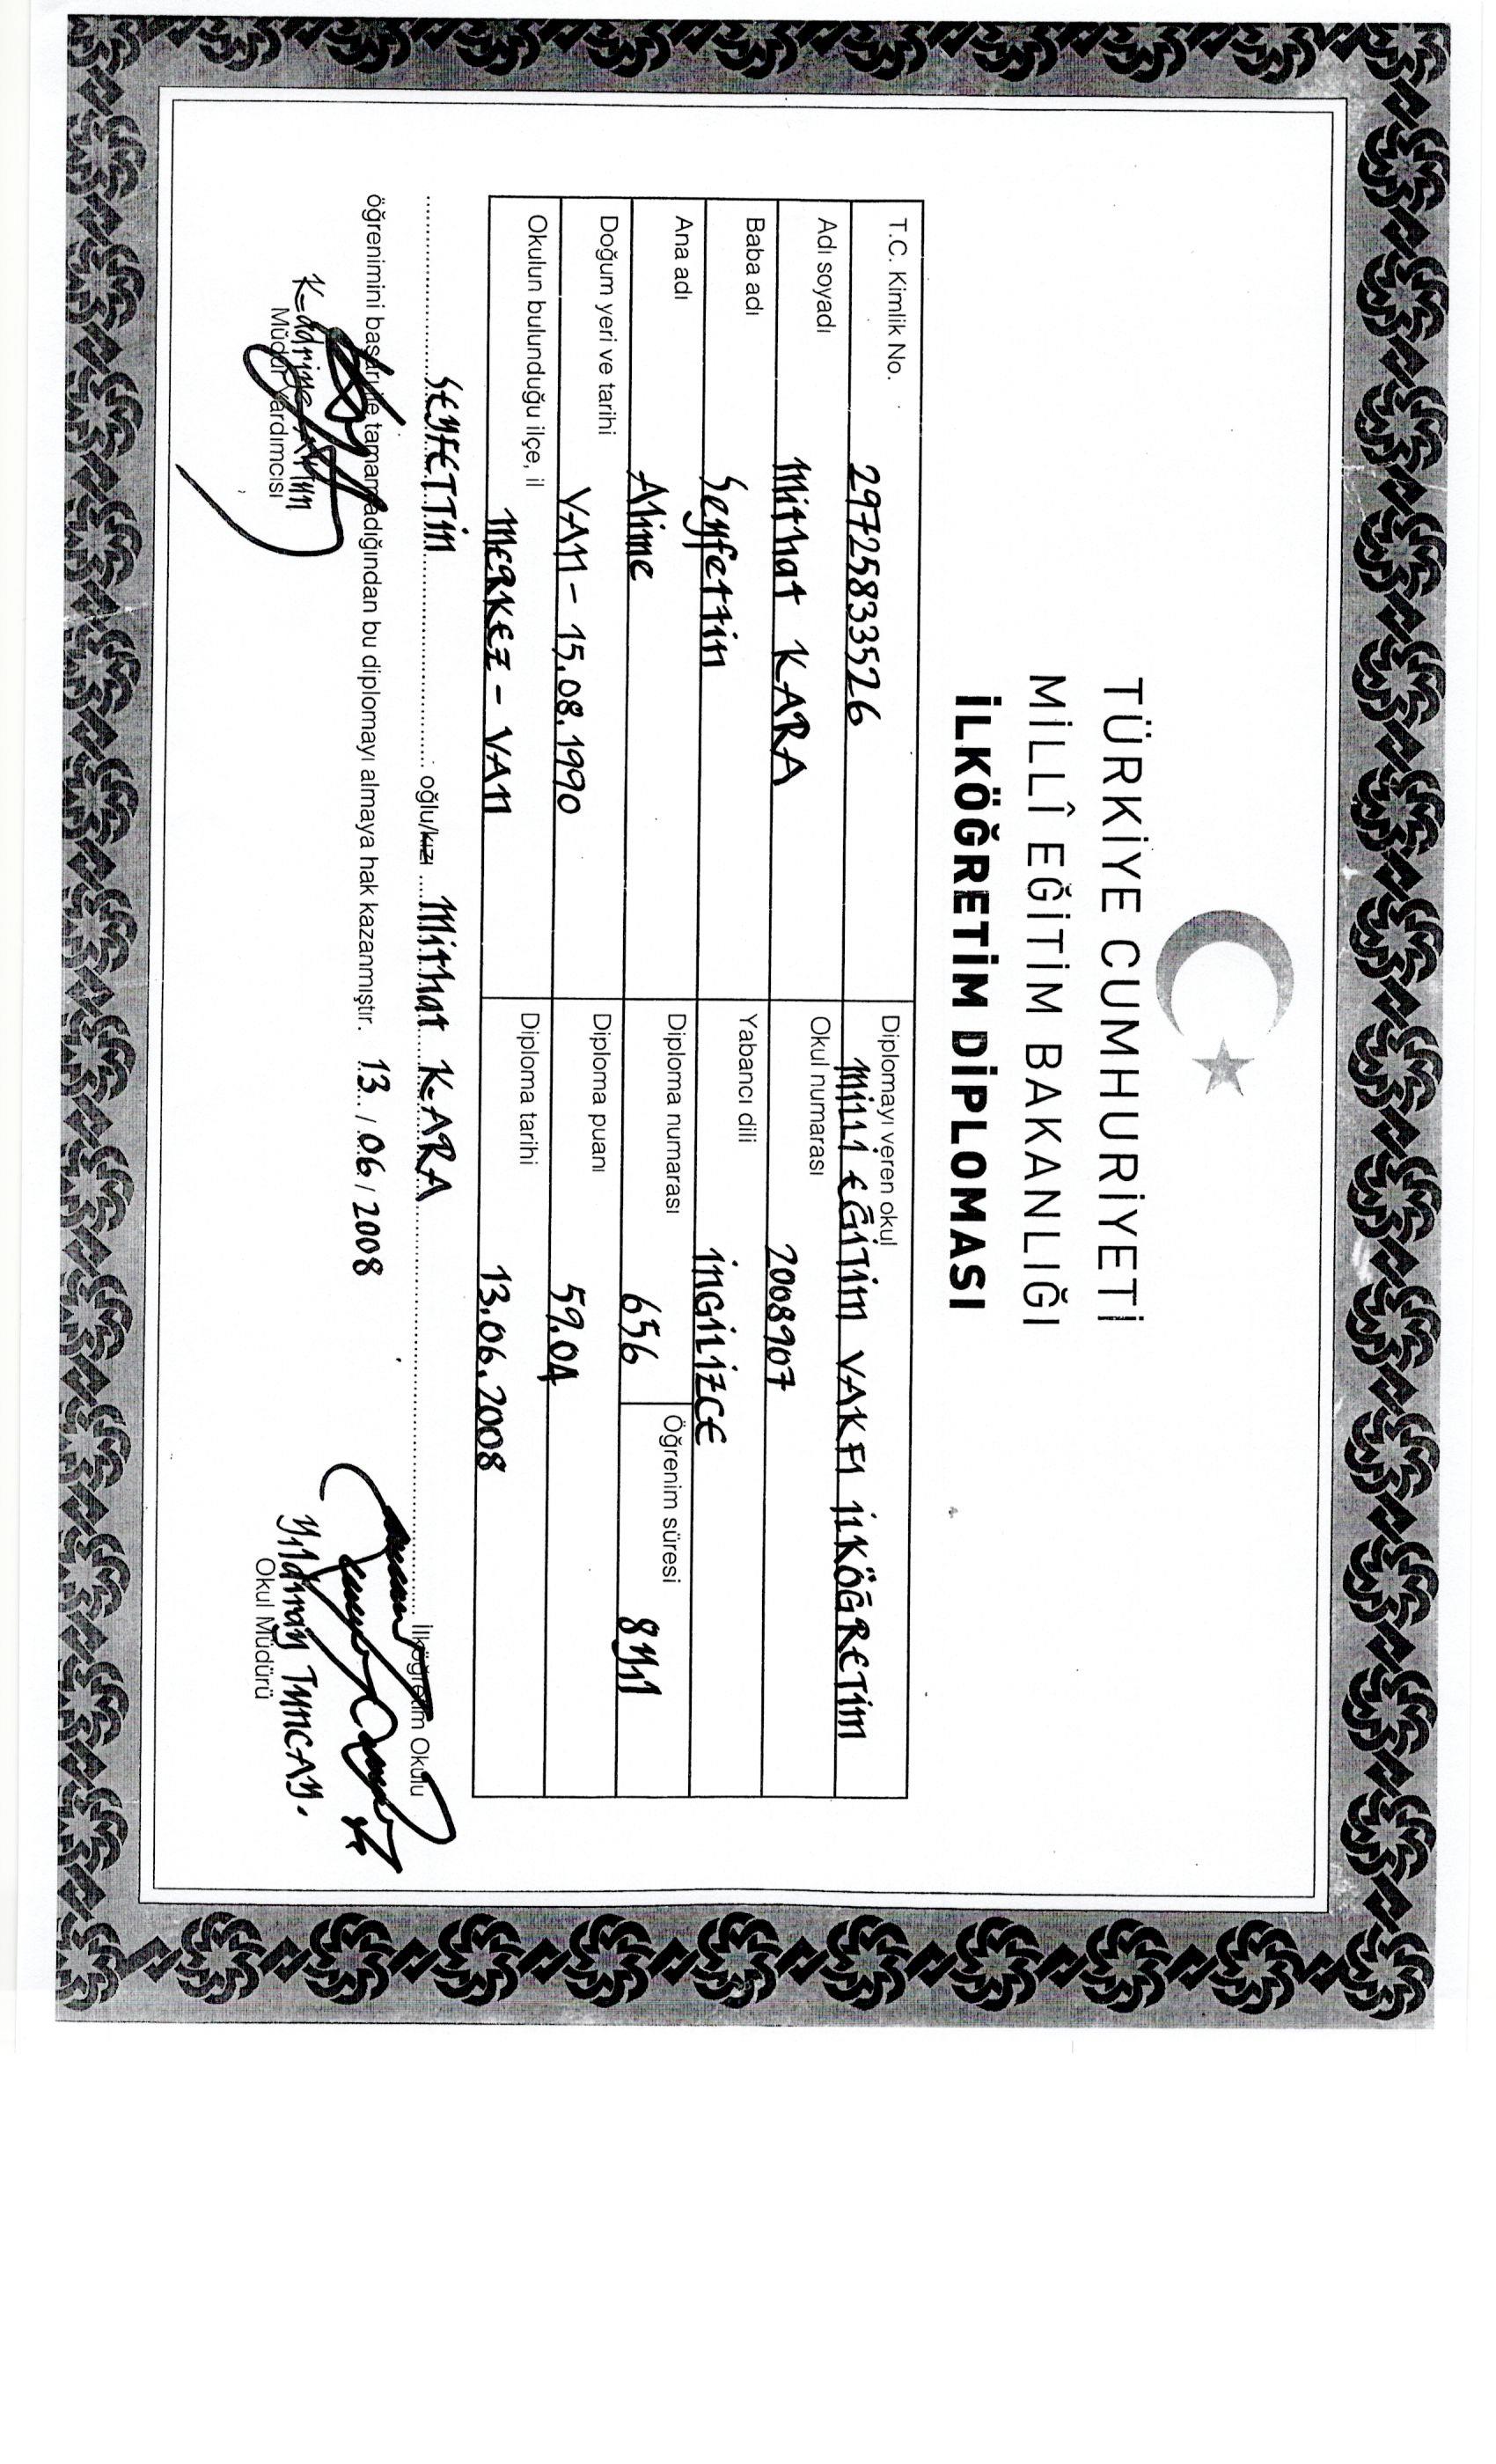 TÜRKİYE CUMHURİYETİ
MİLLÎ EĞİTİM BAKANLIĞI
İLKÖĞRETİM DİPLOMASI
T.C. Kimlik No. 29725833526
Diplomayı veren okul MİLLİ EĞİTİM VAKFI İLKÖĞRETİM
Adı soyadı Mithat KARA
Okul numarası 2008907
Baba adı Seyfettin
Yabancı dili İNGİLİZCE
Ana adı Alime
Diploma numarası 656
Öğrenim süresi 8 yıl
Doğum yeri ve tarihi VAN - 15.08.1990
Diploma puanı 59.04
Okulun bulunduğu ilçe, il MERKEZ - VAN
Diploma tarihi 13.06.2008
SEYFETTİN oğlu/kızı Mithat KARA İlköğretim Okulu
öğrenimini başarı ile tamamladığından bu diplomayı almaya hak kazanmıştır. 13 / 06 / 2008
Kadriye Altun
Müdür Yardımcısı
Yıldıray TUNCAY.
Okul Müdürü